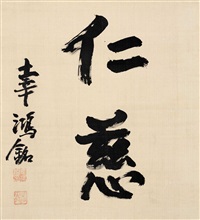 仁慈
辜鴻銘